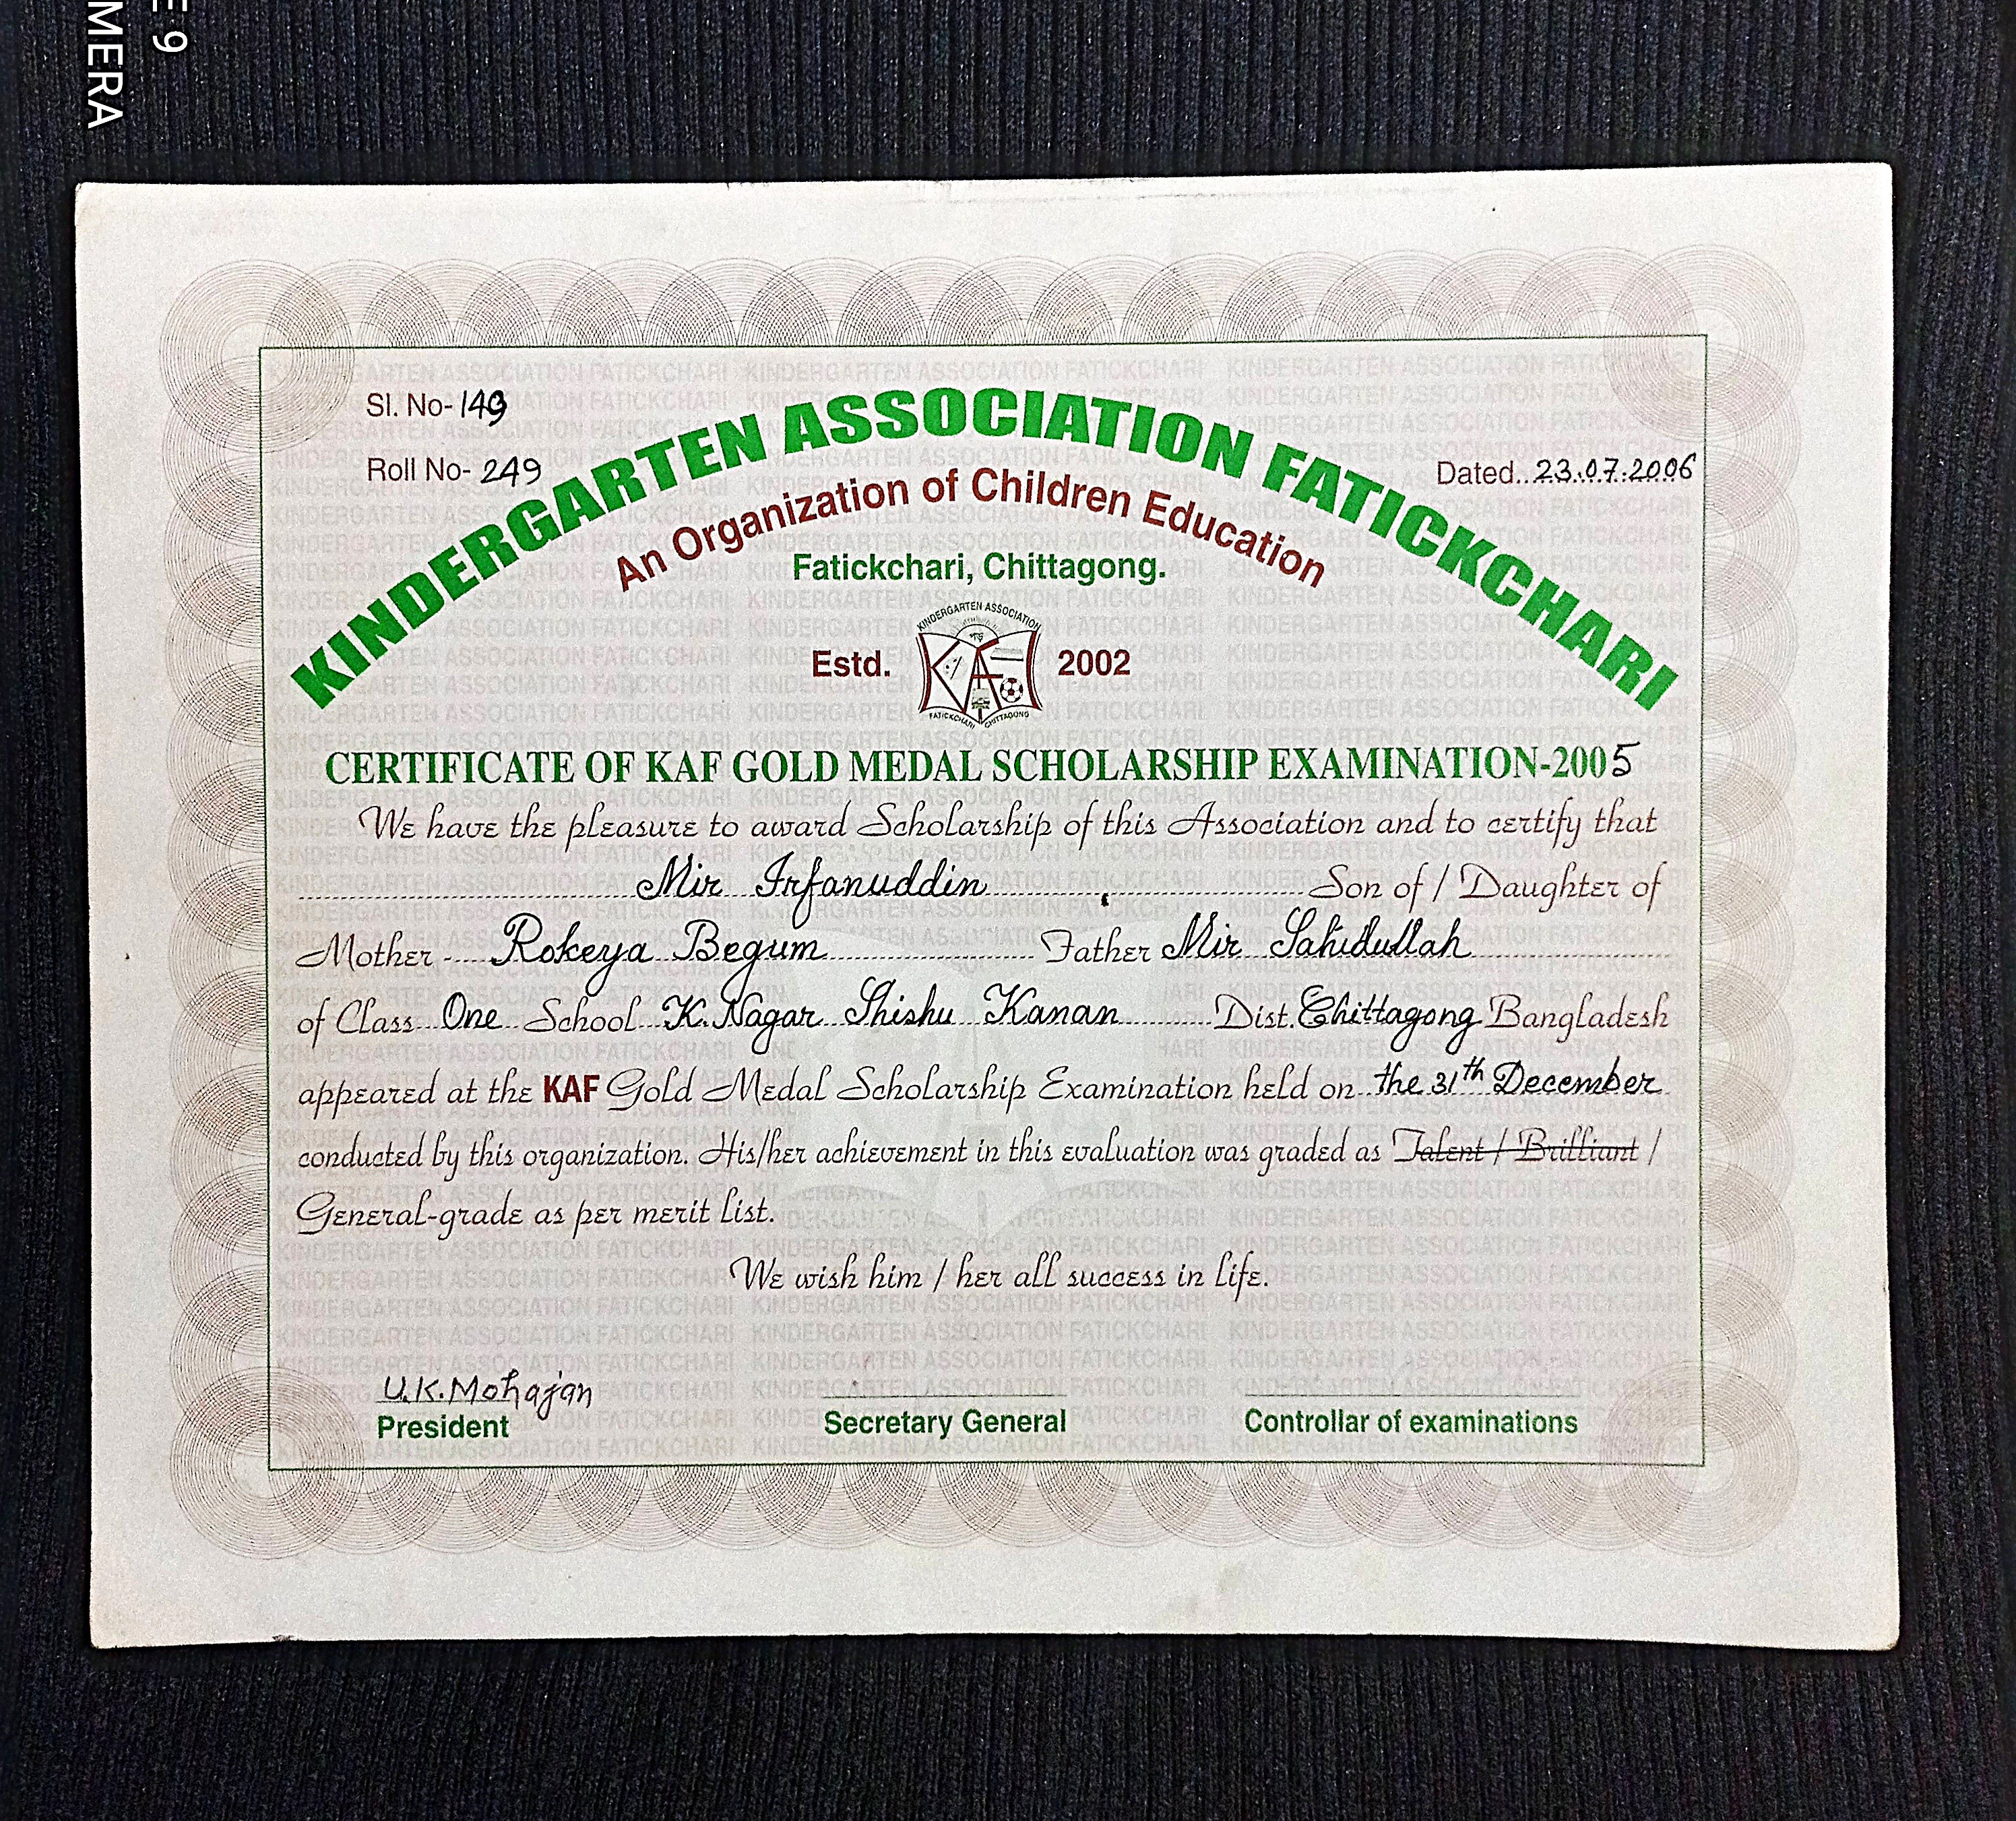 E 9
MERA
Sl. No- 149
Roll No- 249
Dated.. 23.07.2006
KINDERGARTEN ASSOCIATION FATICKCHARI
An Organization of Children Education
Fatickchari, Chittagong.
KINDERGARTEN ASSOCIATION
Estd. KAF 2002
FATICKCHARI CHITTAGONG
CERTIFICATE OF KAF GOLD MEDAL SCHOLARSHIP EXAMINATION-2005
We have the pleasure to award Scholarship of this Association and to certify that
Mir Irfanuddin Son of / Daughter of
Mother Rokeya Begum Father Mir Sahidullah
of Class One School K. Nagar Shishu Kanan Dist. Chittagong Bangladesh
appeared at the KAF Gold Medal Scholarship Examination held on the 31th December
conducted by this organization. His/her achievement in this evaluation was graded as Talent / Brilliant /
General-grade as per merit list.
We wish him / her all success in life.
U.K. Mohajan
President Secretary General Controllar of examinations